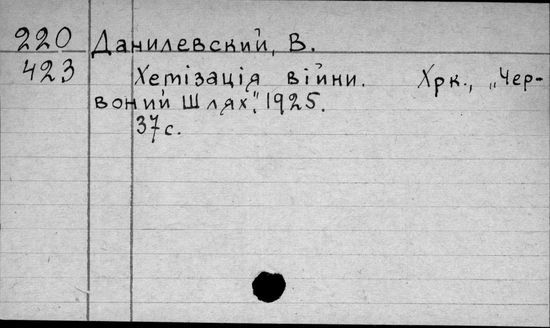 220 Данилевский, В.
423 Хемізація війни. Хрк., „Чер-
воний Шлях", 1925.
37 с.